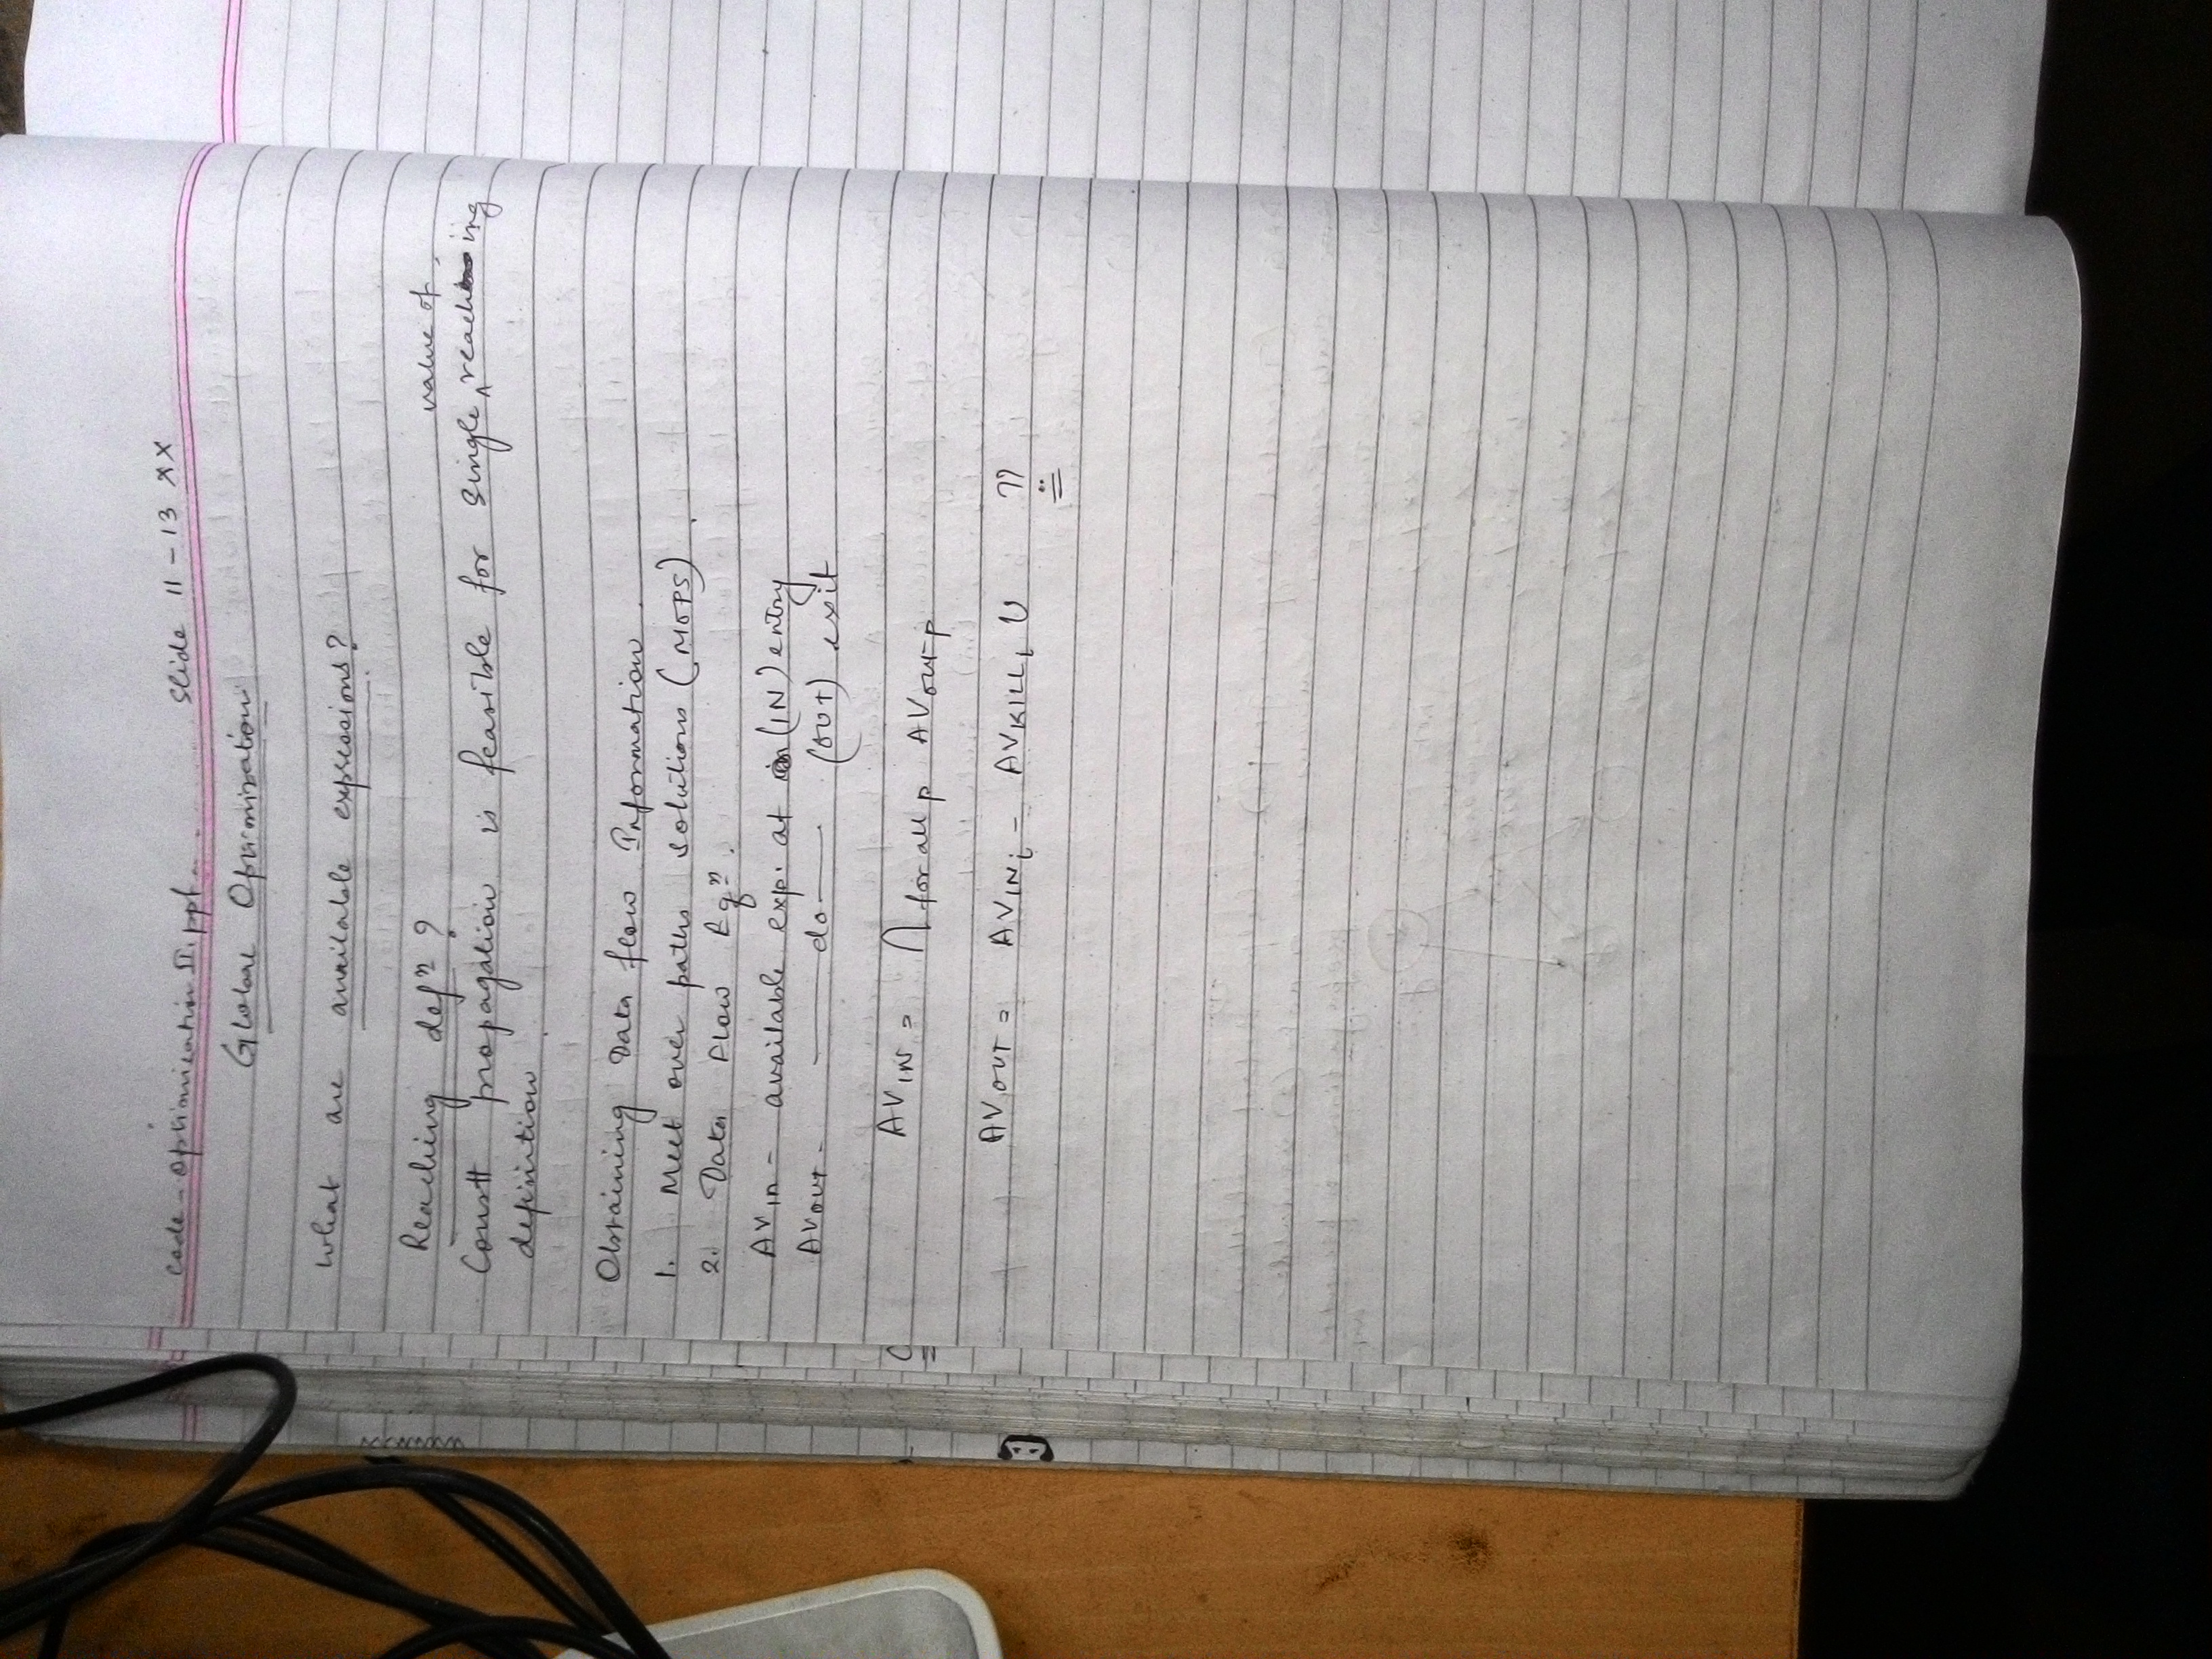 code-optimization II.ppt slide 11 - 13 XX
Global Optimization
What are available expressions?
Reaching defⁿ ?
Constt propagation is feasible for single value of reaching
definition.
Obtaining Data flow Information.
1. Meet over paths solutions (MOPS).
2. Data Flow Eqⁿ.
AVin - available exp. at (IN) entry
AVOUT - —do— (OUT) exit
AVIN = ∩ for all p AVOUTp
AVOUT = AVINi - AVKILLi U ??